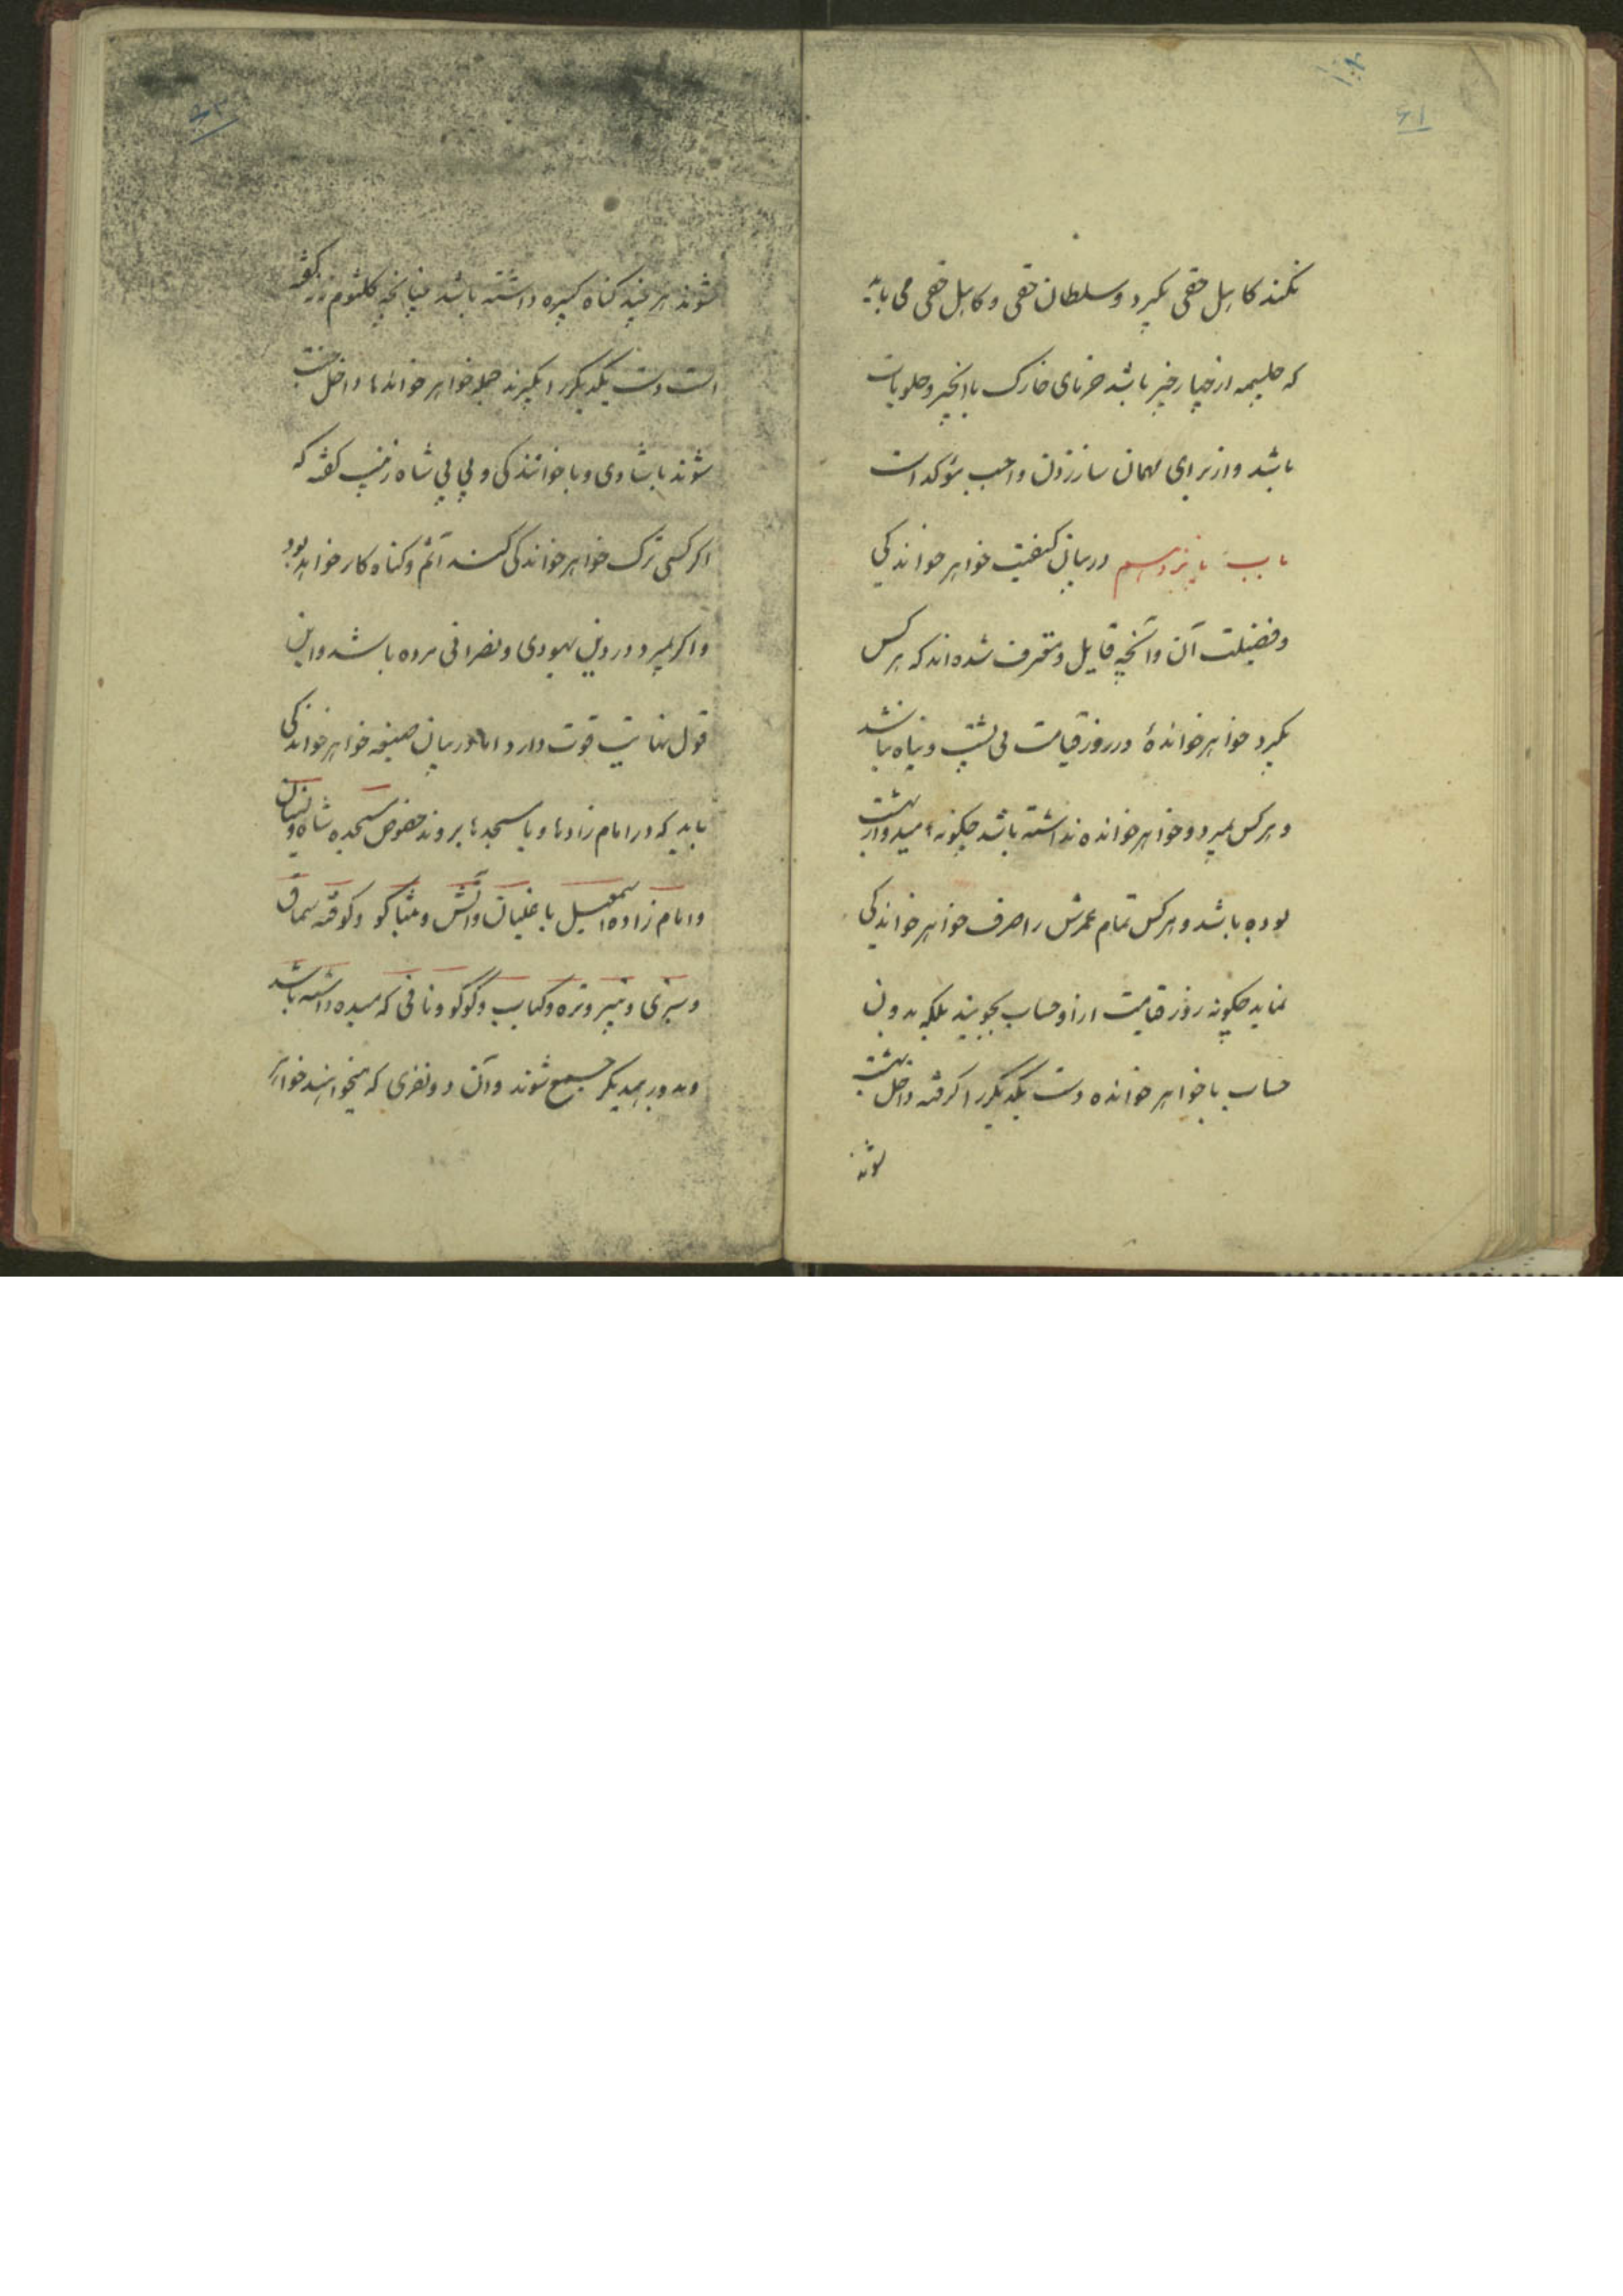 ۶۱
نکند کابل حقی بگیرد و سلطان حقی و کابل حقی می باید
که حلیمه از خیار چنبر باشد خرمای خارک با انجیر و حلویات
باشد و از برای مهمان ساز زدن واجب مؤکد است
باب پانزدهم در بیان کیفیت خواهر خواندیکی
و فضیلت آن و آنچه قایل و معترف شده‌اند که هر کس
بگیرد خواهر خواندهٔ در روز قیامت بی پشت و پناه نباشد
و هر کس بمیرد و خواهر خوانده نداشته باشد چکونه امیدوار بهشت
بوده باشد و هر کس تمام عمرش را صرف خواهر خواندیکی
نماید چکونه روز قیامت از او حساب بجویند بلکه بدون
حساب با خواهر خوانده دست یکدیکر را کرفته داخل بهشت
شوند
۶۲
شوند هر چند کناه کبیره داشته باشد چنانچه کلثوم ننه کفته
است دست یکدیکر را بگیرند جمله خواهر خوانده‌ها داخل جنت
شوند با شادی و با خوانندکی و بی بی شاه زینب کفته که
اکر کسی ترک خواهر خواندکی کند آثم و کناه کار خواهد بود
و اکر بمیرد در دین یهودی و نصرانی مرده باشد و این
قول نهایت قوت دارد اما در بیان صیغه خواهر خواندکی
باید که در امام زادها و یا مسجدها بروند خصوص سجده شاه ولیان
و امام زاده اسمعیل با غلیان و آتش و تنباکو و کوفته سماق
و سبزی و پنیر و تره و کباب و کوکو و نانی که میده داشته باشد
و به دور همدیکر جمیع شوند و آن دو نفری که میخواهند خواهر